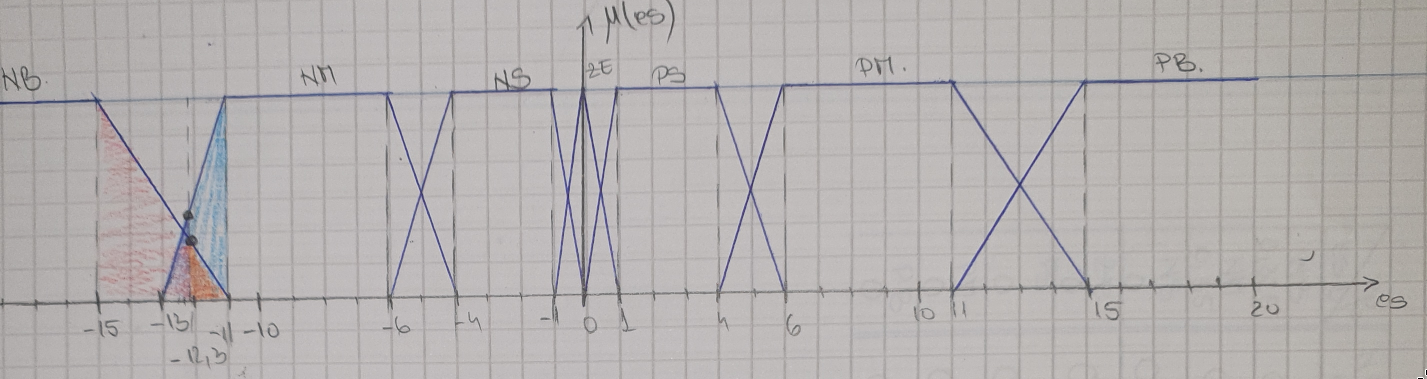 μ(es)
NB. NM NS ZE PS PM. PB.
-15 -13 -11 -10 -6 -4 -1 0 1 4 6 10 11 15 20 es
-12,3